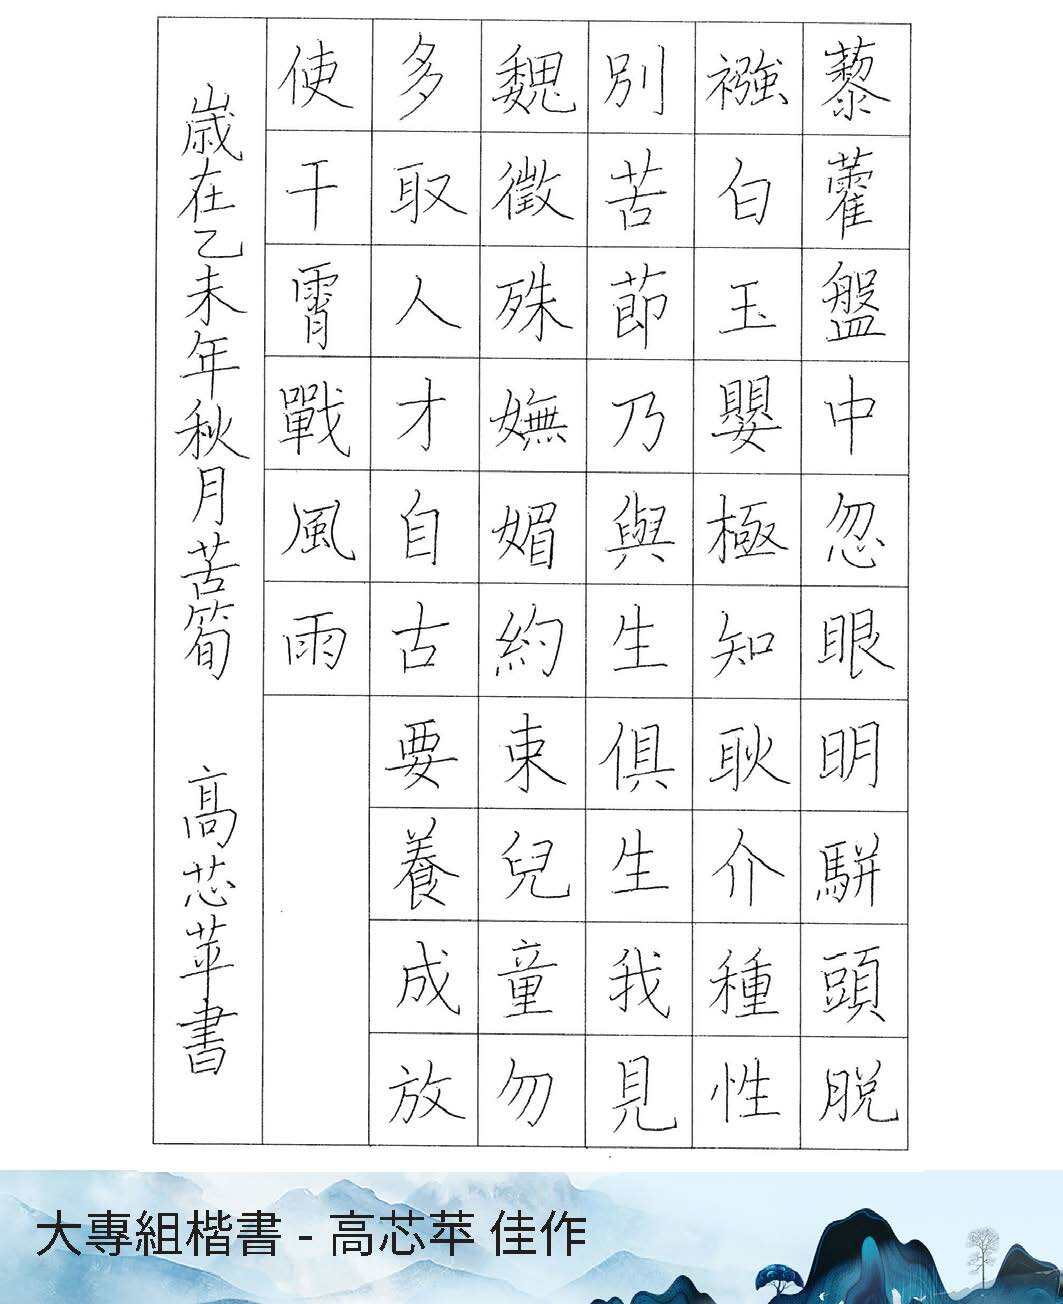 藜藿盤中忽眼明駢頭脫
襁白玉嬰極知耿介種性
別苦節乃與生俱生我見
魏徵殊嫵媚約束兒童勿
多取人才自古要養成放
使干霄戰風雨
歲在乙未年秋月苦筍 高芯苹書
大專組楷書 - 高芯苹 佳作